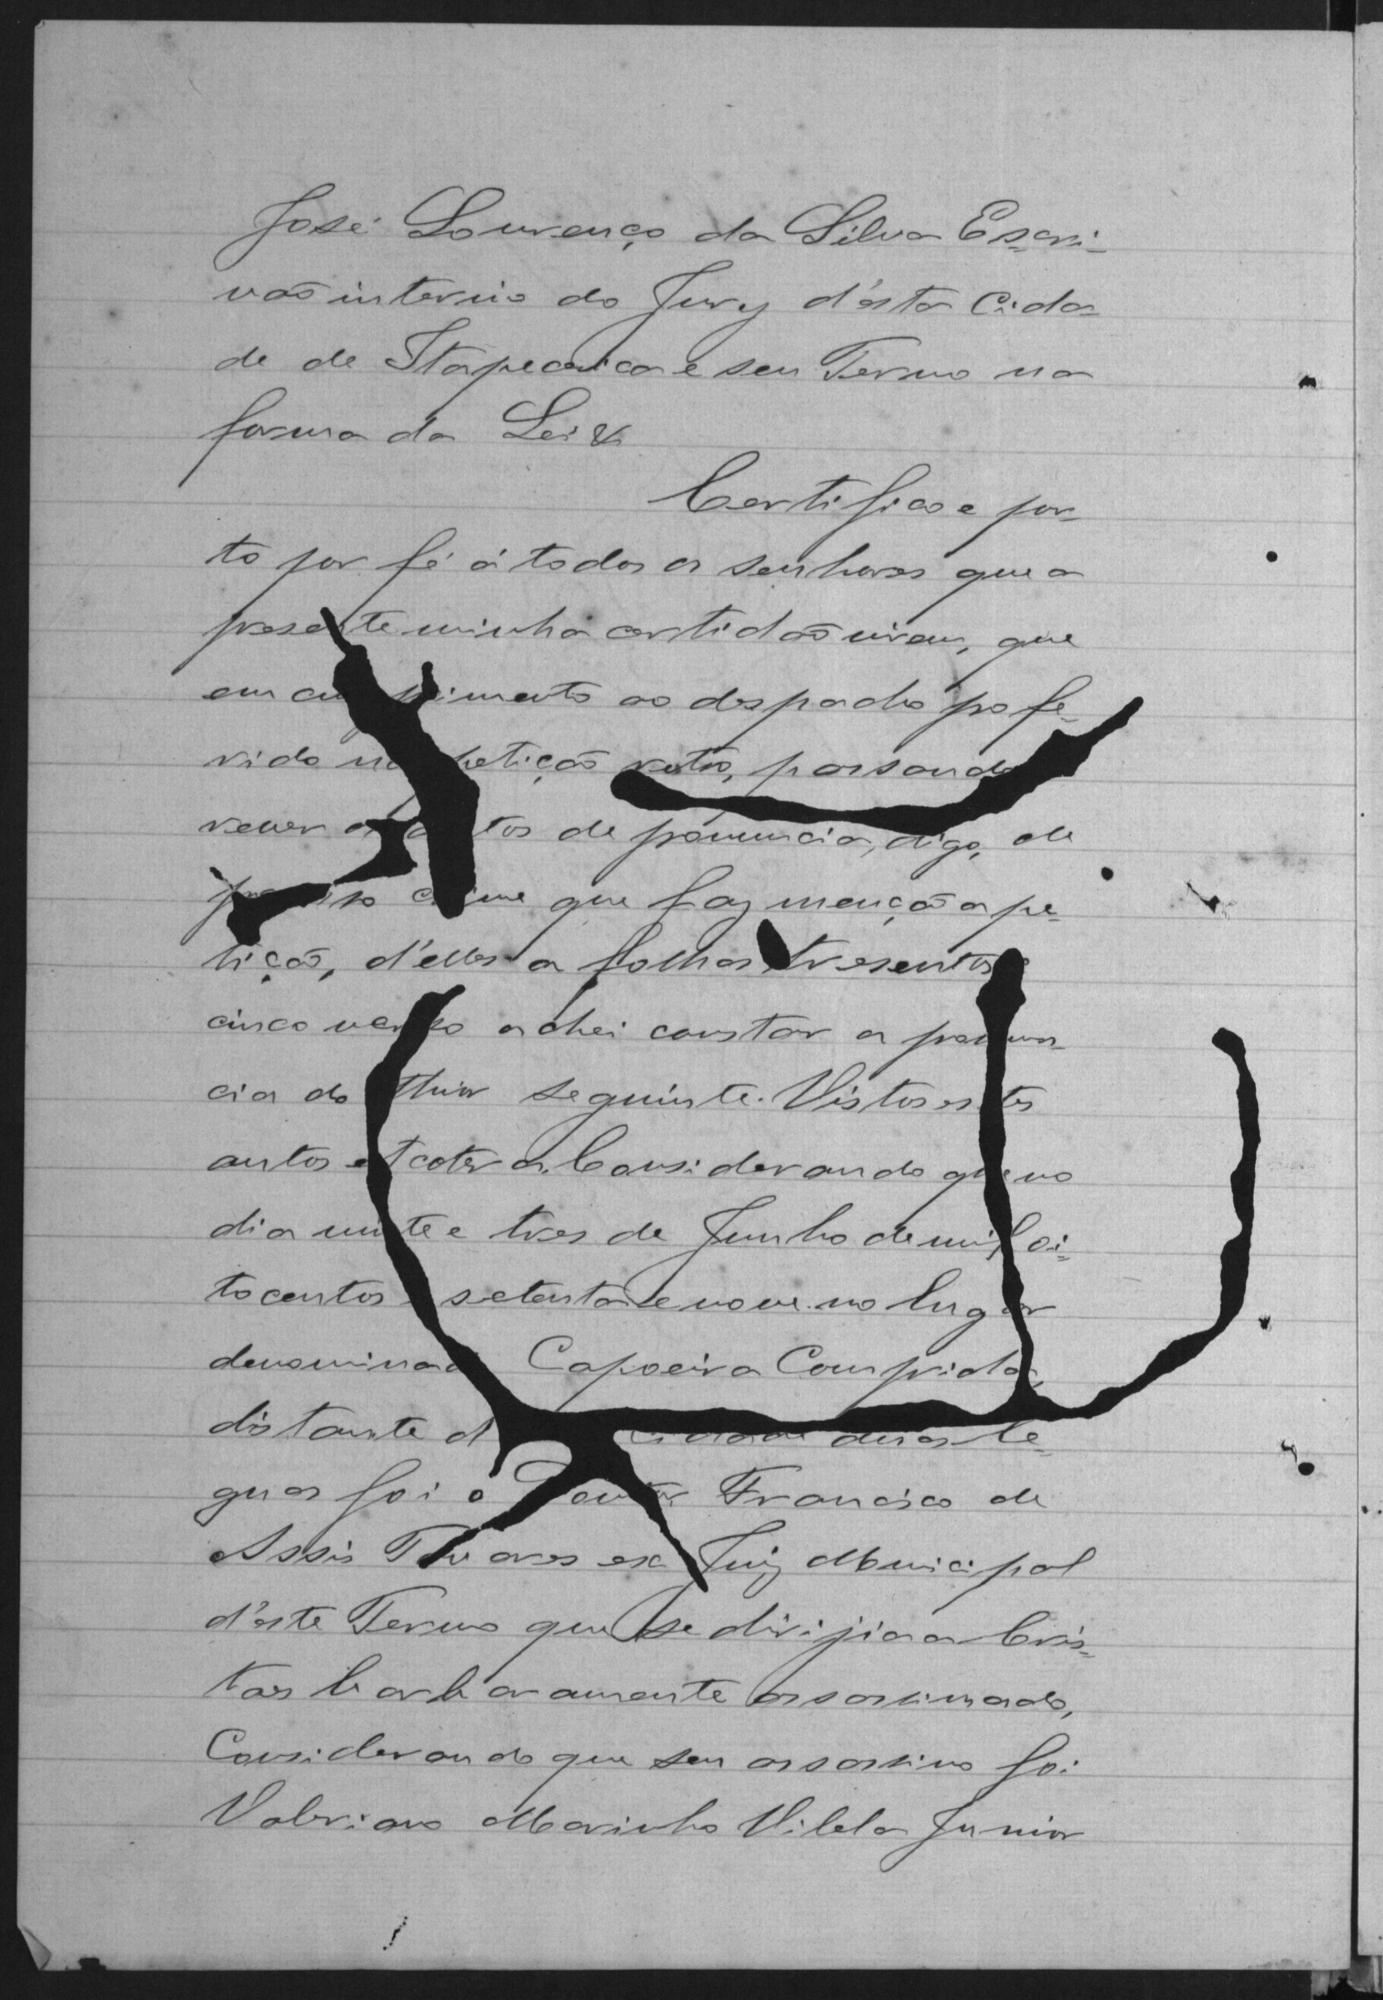 José Lourenço da Silva Escri-
vão interino do Jury d'esta Cida-
de de Itapecerica e seu Termo na
forma da Lei &
Certifico e por-
to por fé á todos os senhores que a
presente minha certidão virem, que
em cumprimento ao despacho profe-
rido na petição retro, passando
rever os autos de pronuncia, digo, de
processo crime que faz menção a pe-
tição, d'elles a folhas tresentos e
cinco verso achei constar a pronun-
cia do thior seguinte. Vistos estes
autos etcetera. Considerando que no
dia vinte e tres de Junho de mil oi-
tocentos e setenta e nove no lugar
denominado Capoeira Comprida,
distante d cidade duas le-
guas foi o Doutor Francisco de
Assis Tavares ex Juiz Municipal
d'este Termo que se dirijia a Cris-
taes barbaramente assassinado,
Considerando que seu assassino foi
Valeriano Marinho Vilela Junior